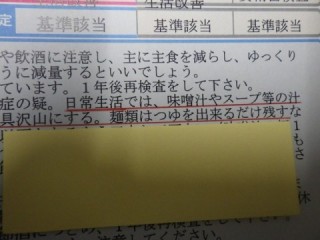 定
生活改善
基準該当 基準該当 基準該当
や飲酒に注意し、主に主食を減らし、ゆっくり
うに減量するといいでしょう。
ています。1年後再検査をして下さい。
症の疑。日常生活では、味噌汁やスープ等の汁
具沢山にする。麺類はつゆを出来るだけ残すな
1
もさ
休